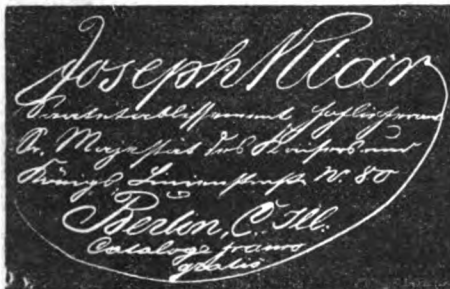 Joseph Klar
Samenetablissement, Hoflieferant
Sr. Majestät des Kaisers und
Königs, Linienstraße N. 80
Berlin, C. Ill.
Cataloge franco
gratis